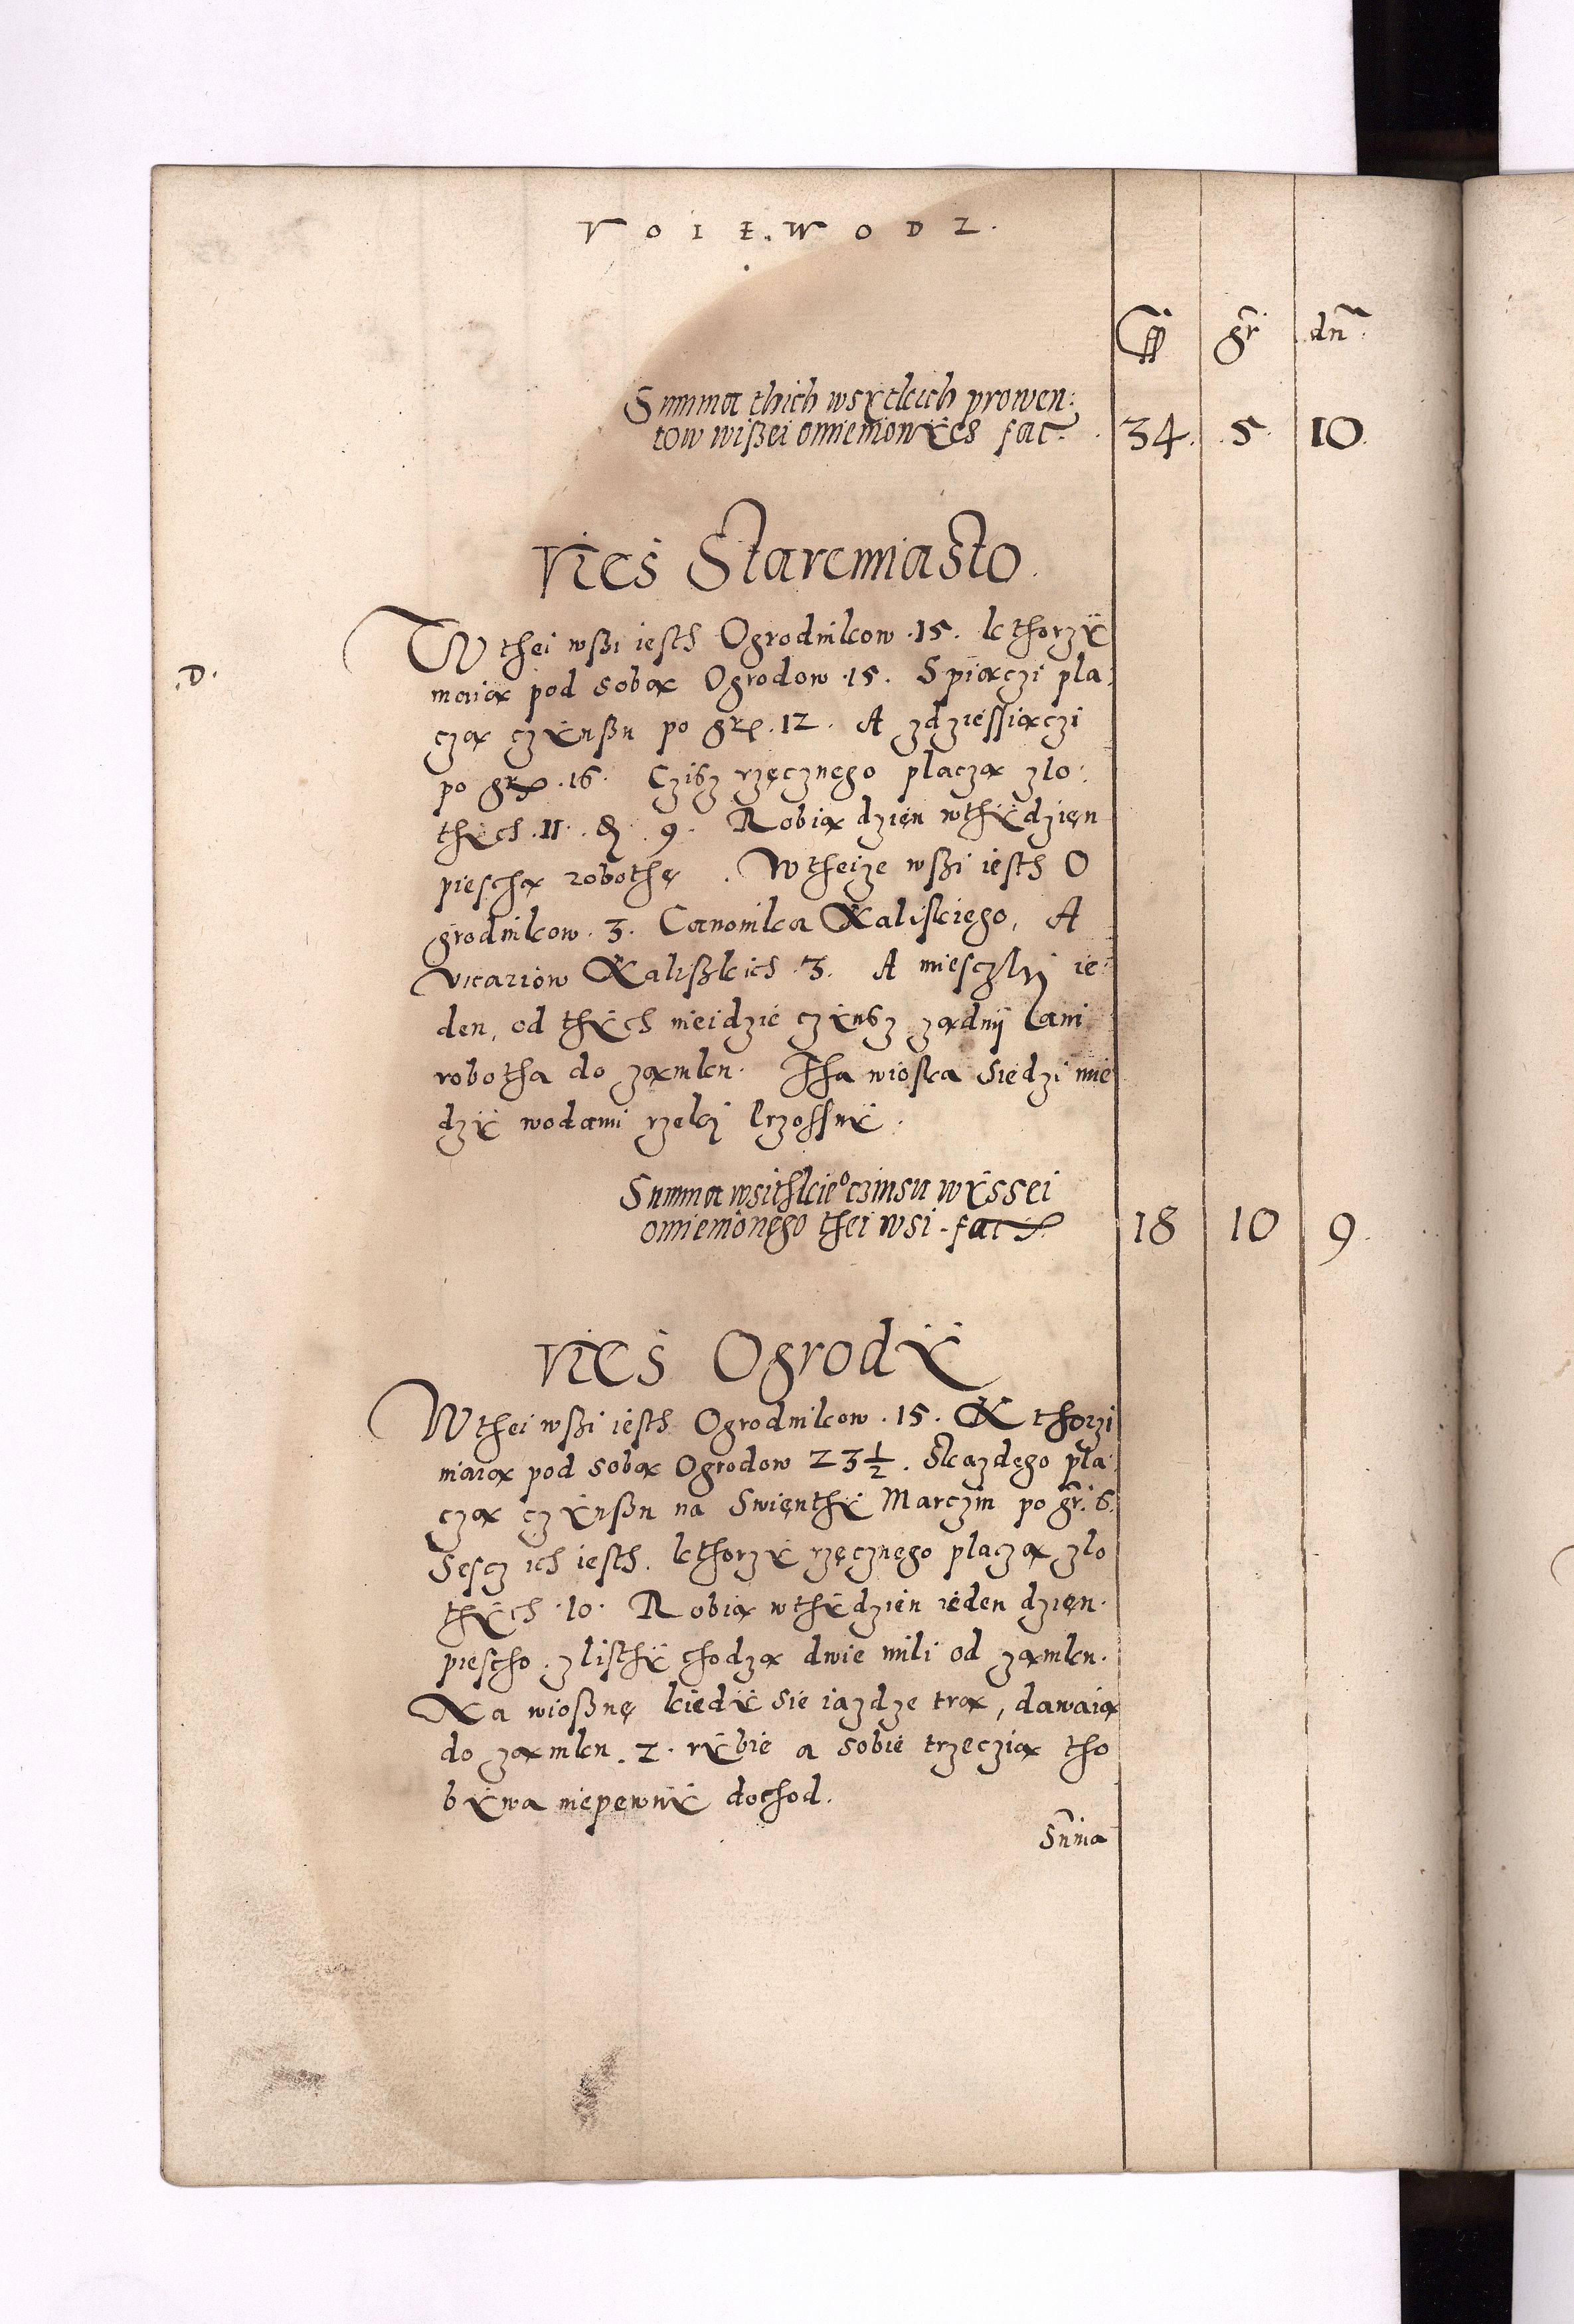 VOIE.WODZ.
gr dn
Summa thich wsÿtkich prowen:
tow wißei omienionÿch fac. 34. 5. 10.
Vieś Staremiasto.
W thei wßi iesth Ogrodnikow .15. kthorzÿ
.D.
maią pod sobą Ogrodow .15. Spiączi pla:
czą czÿnßu po gr. 12. A zdziessiączi
po gr. 16. Czisz rzęcznego placzą zlo:
thÿch .11. 9. Robią dzien wthÿdzięn
piesthą robothę. Wtheize wßi iesth O
grodnikow .3. Canonika Kaliskiego, A
vicariow Kalißkich .3. A miesczki ie:
den, od thÿch nieidzie czÿnsz żadnÿ ani
robotha do zamku. Tha wioska siedzi mie
dzÿ wodami rzeki Przossnÿ.
Summa wsithkie° czinsu wÿssei
omienionego thei wsi . fac 18 10 9.
Vieś Ogrodÿ
W thei wßi iesth Ogrodnikow .15. Kthorzi
maią pod sobą Ogrodow 23 1/2. Skazdego pla:
czą czÿnßu na Swięnthÿ Marczin po gr. 6.
Sescz ich iesth. kthorzÿ rzęcznego placzą zlo
thÿch .10. Robią wthÿdzien ieden dzięn.
piescho. zlisthÿ chodzą dwie mili od zamku.
Na wiosnę kiedÿ sie iazdze trą, dawaią
do zamku .2. rÿbie a sobie trzeczią tho
bÿwa niepewnÿ dochod.
Suma